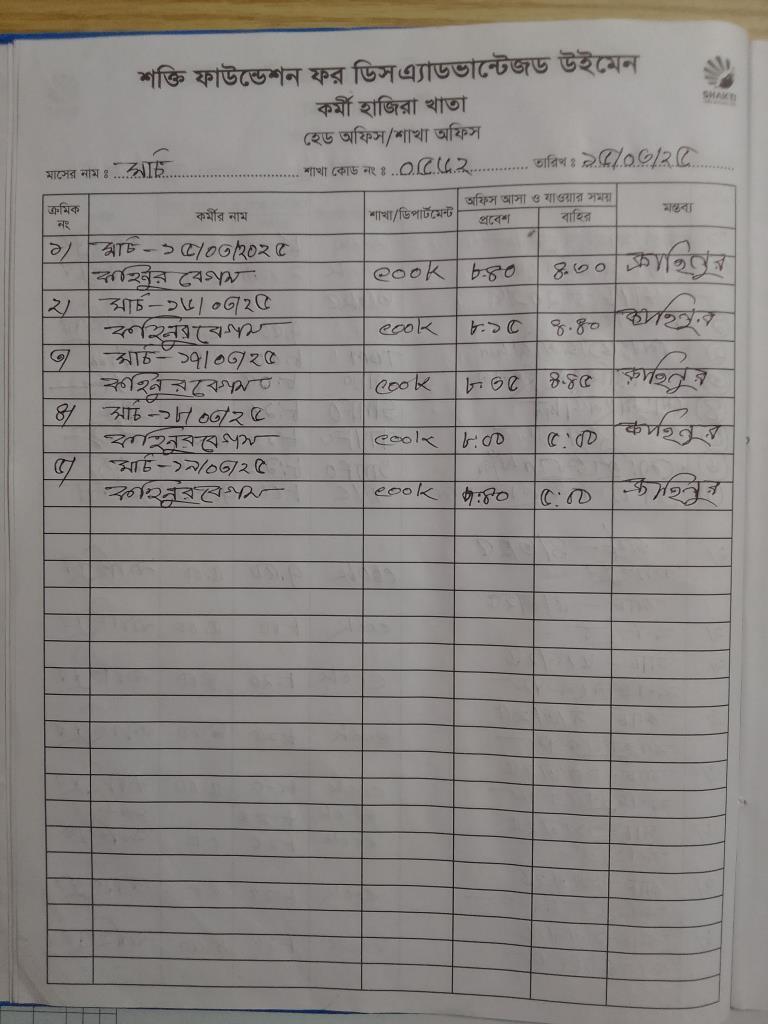 শক্তি ফাউন্ডেশন ফর ডিসএ্যাডভান্টেজড উইমেন
SHAKTI
কর্মী হাজিরা খাতা
হেড অফিস/শাখা অফিস
মাসের নাম : মার্চ শাখা কোড নং : ০৫৫২ তারিখ : ১৫/০৩/২৫
ক্রমিক নং কর্মীর নাম শাখা/ডিপার্টমেন্ট অফিস আসা ও যাওয়ার সময় মন্তব্য
প্রবেশ বাহির
১/ মার্চ -১৫/০৩/২০২৫
কহিনুর বেগম cook ৮.৪০ ৪.৩০ কহিনুর
২/ মার্চ -১৬/০৩/২৫
কহিনুর বেগম cook ৮.১৫ ৪.৪০ কহিনুর
৩/ মার্চ -১৭/০৩/২৫
কহিনুর বেগম cook ৮.৩৫ ৪.৪৫ কহিনুর
৪/ মার্চ -১৮/০৩/২৫
কহিনুর বেগম cook ৮:০০ ৫:০০ কহিনুর
৫/ মার্চ -১৯/০৩/২৫
কহিনুর বেগম cook ৭:৪০ ৫:০০ কহিনুর